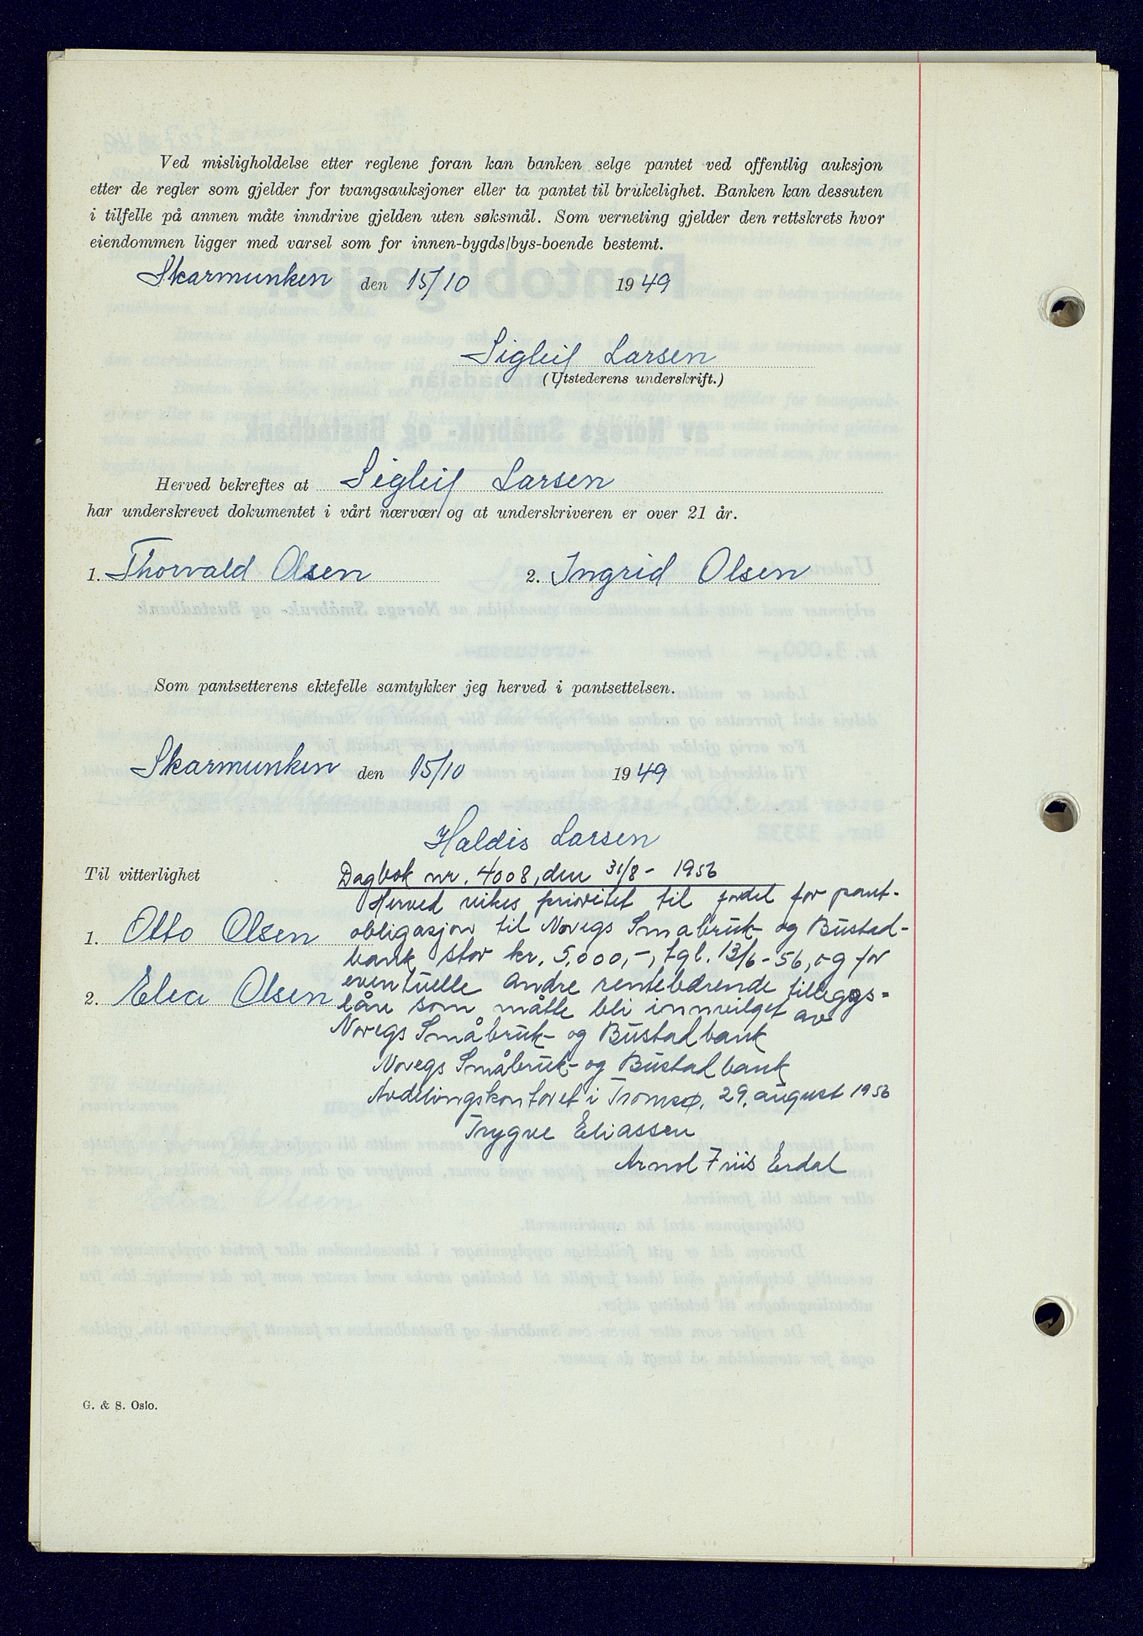 Ved misligholdelse etter reglene foran kan banken selge pantet ved offentlig auksjon
etter de regler som gjelder for tvangsauksjoner eller ta pantet til brukelighet. Banken kan dessuten
i tilfelle på annen måte inndrive gjelden uten søksmål. Som verneting gjelder den rettskrets hvor
eiendommen ligger med varsel som for innen-bygds/bys-boende bestemt.
Skarmunken den 15/10 1949
Sigleif Larsen
(Utstederens underskrift.)
Herved bekreftes at Sigleif Larsen
har underskrevet dokumentet i vårt nærvær og at underskriveren er over 21 år.
1. Thorvald Olsen 2. Ingrid Olsen
Som pantsetterens ektefelle samtykker jeg herved i pantsettelsen.
Skarmunken den 15/10 1949
Haldis Larsen
Til vitterlighet
1. Otto Olsen
2. Elea Olsen
Dagbok nr. 4008, den 31/8 - 1956
Herved vikes prioritet til fordel for pant-
obligasjon til Noregs Småbruk- og Bustad-
bank, stor kr. 5.000,-, tgl. 13/6-56, og for
eventuelle andre rentebærende tilleggs-
lån som måtte bli innvilget av
Noregs Småbruk- og Bustadbank
Noregs Småbruk- og Bustadbank
Avdelingskontoret i Tromsø, 29. august 1956
Trygve Eliassen
Arnol Friis Erdal
G. & S. Oslo.